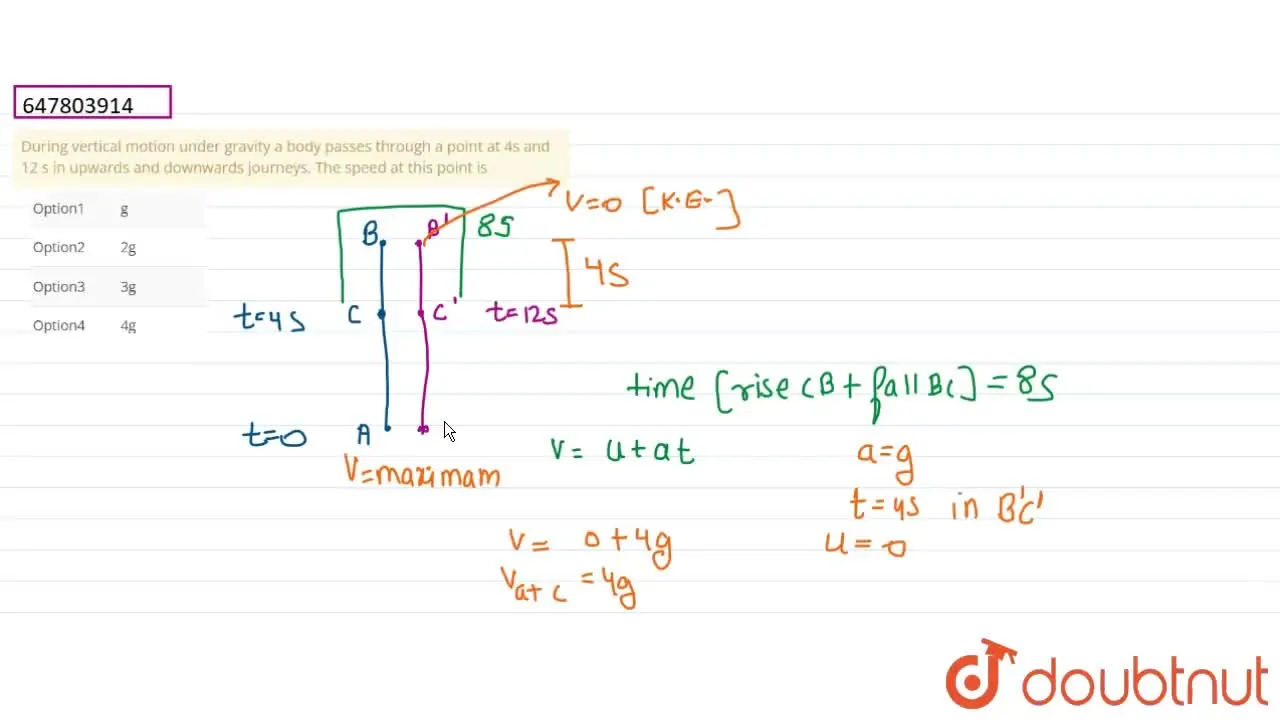 647803914
During vertical motion under gravity a body passes through a point at 4s and
12 s in upwards and downwards journeys. The speed at this point is
Option1 g
Option2 2g
Option3 3g
Option4 4g
V=0 [K.E.]
B B' 8S
4S
t=4s C C' t=12s
time [rise CB + fall BC] = 8s
t=0 A
V=maximam
V= u+at
a=g
t=4s in B'C'
V= 0+4g
u=0
Vat C =4g
doubtnut